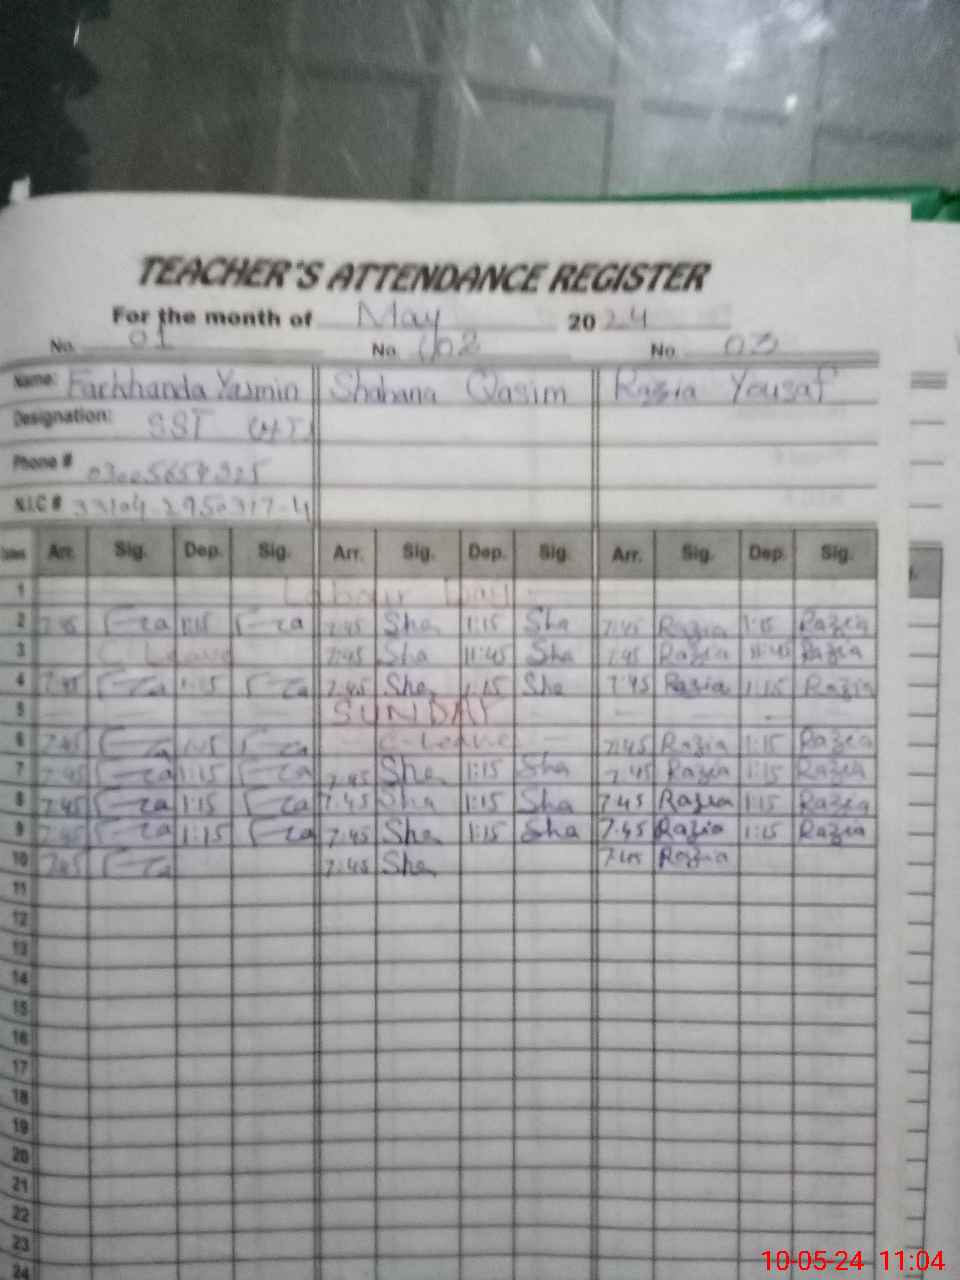 TEACHER'S ATTENDANCE REGISTER
For the month of May 2024
No. 01 No. 02 No 03
Name: Farkhanda Yasmin Shabana Qasim Razia Yousaf
Designation: SST
Phone #
N.I.C #
Dates Arr. Sig. Dep. Sig. Arr. Sig. Dep. Sig. Arr. Sig. Dep. Sig.
1 Labour Day
2 7:45 1:15 7:45 Sha 1:15 Sha 7:45 Razia 1:15 Razia
3 C Leave 7:45 Sha 11:45 Sha 7:45 Razia 11:45 Razia
4 7:45 1:15 7:45 Sha 1:15 Sha 7:45 Razia 1:15 Razia
5 SUNDAY
6 7:45 1:15 C-Leave 7:45 Razia 1:15 Razia
7 7:45 1:15 7:45 Sha 1:15 Sha 7:45 Razia 1:15 Razia
8 7:45 1:15 7:45 Sha 1:15 Sha 7:45 Razia 1:15 Razia
9 7:45 1:15 7:45 Sha 1:15 Sha 7:45 Razia 1:15 Razia
10 7:45 7:45 Sha 7:45 Razia
11
12
13
14
15
16
17
18
19
20
21
22
23
24
10-05-24 11:04